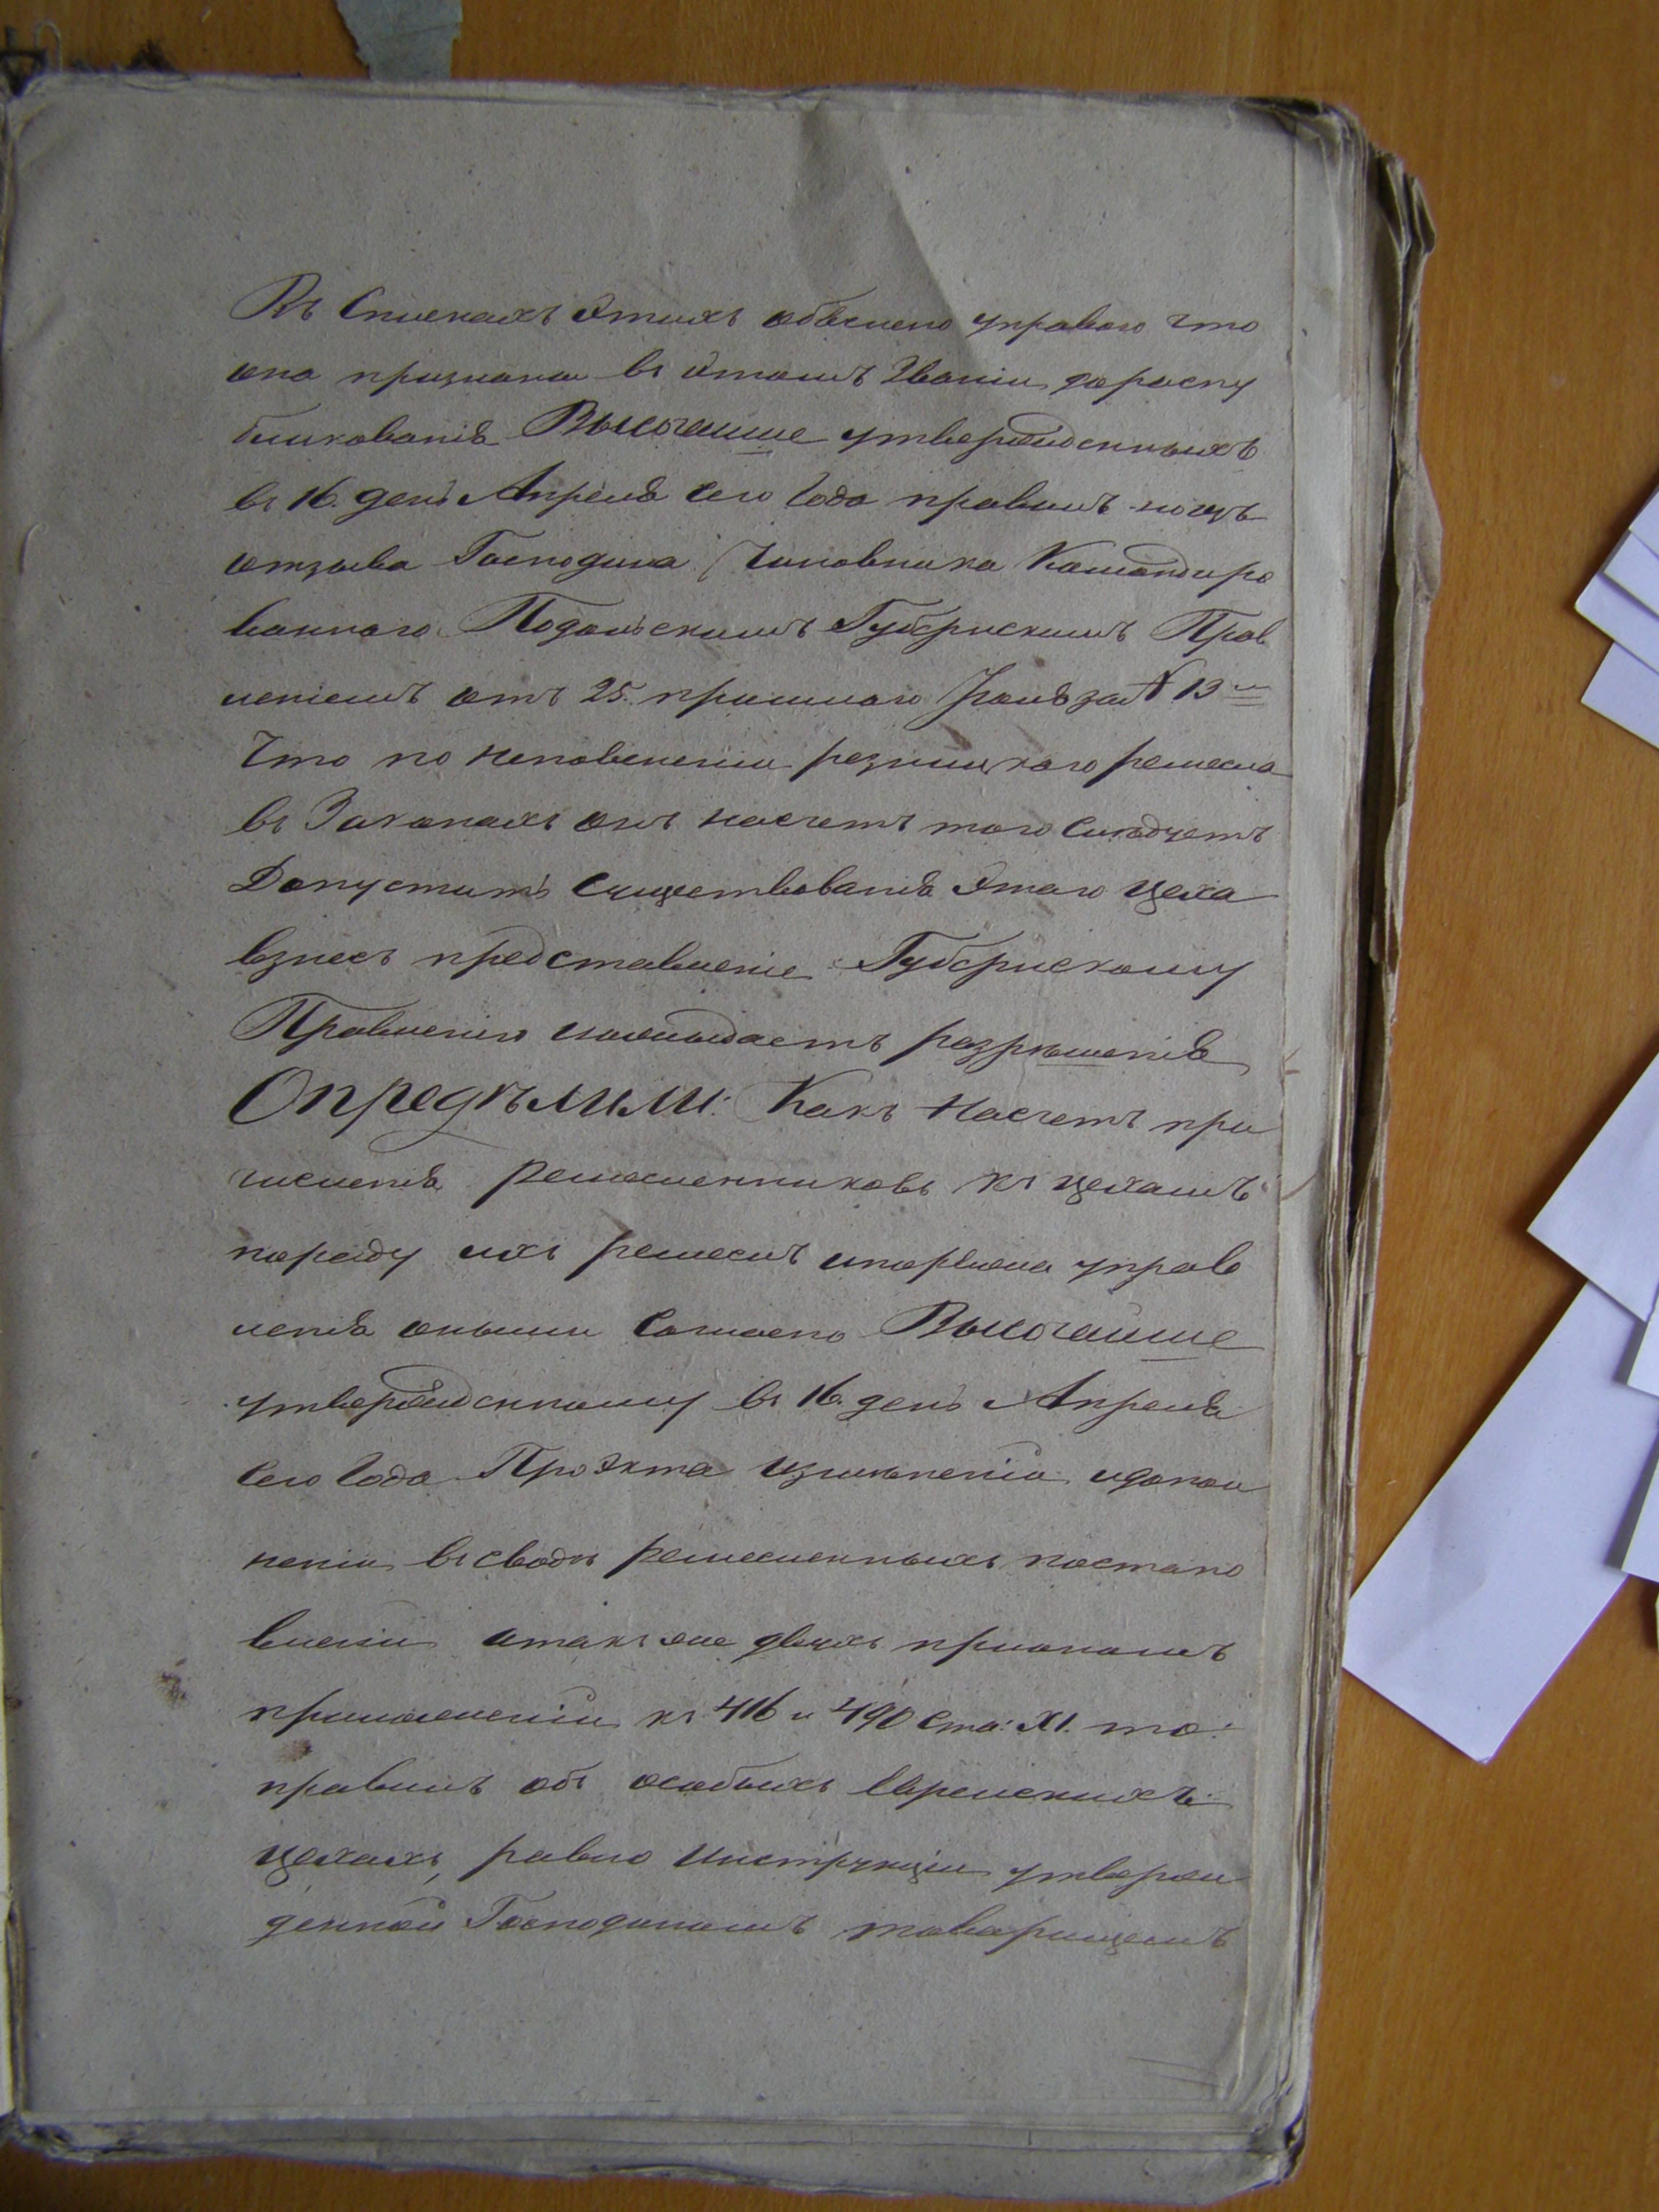 Въ Спискахъ Этихъ объяснено управою что
она признана въ этомъ Званіи до распу
бликованія Высочайше утвержденныхъ
въ 16. день Апреля сего Года правилъ
отзыва Господина Чиновника Командиро
ваннаго Подольскимъ Губернскимъ Прав
леніемъ отъ 25. прошлаго Іюля за № 13
Что по неповсненіи резницкаго ремесла
въ Законахъ онъ насчетъ того слѣдуетъ
Допустить существованія Этаго цеха
взнесъ представленіе Губернскому
Правленію иожидаетъ разрѣшенія
Опредѣлили: Какъ насчетъ при
численія ремесленниковъ къ цехамъ
породу ихъ ремеслъ управ
ленія оными Согласно Высочайше
утвержденному въ 16. день Апреля
сего Года Проэкта измѣненіи идопол
неніи въ сводѣ ремесленныхъ постано
вленіи атакъ же двухъ
приложеніи къ 416 и 490 Ста: XI. то:
правилъ объ особыхъ Еврейскихъ
цехахъ, равно Инструкціи утверж
денной Господиномъ товарищемъ